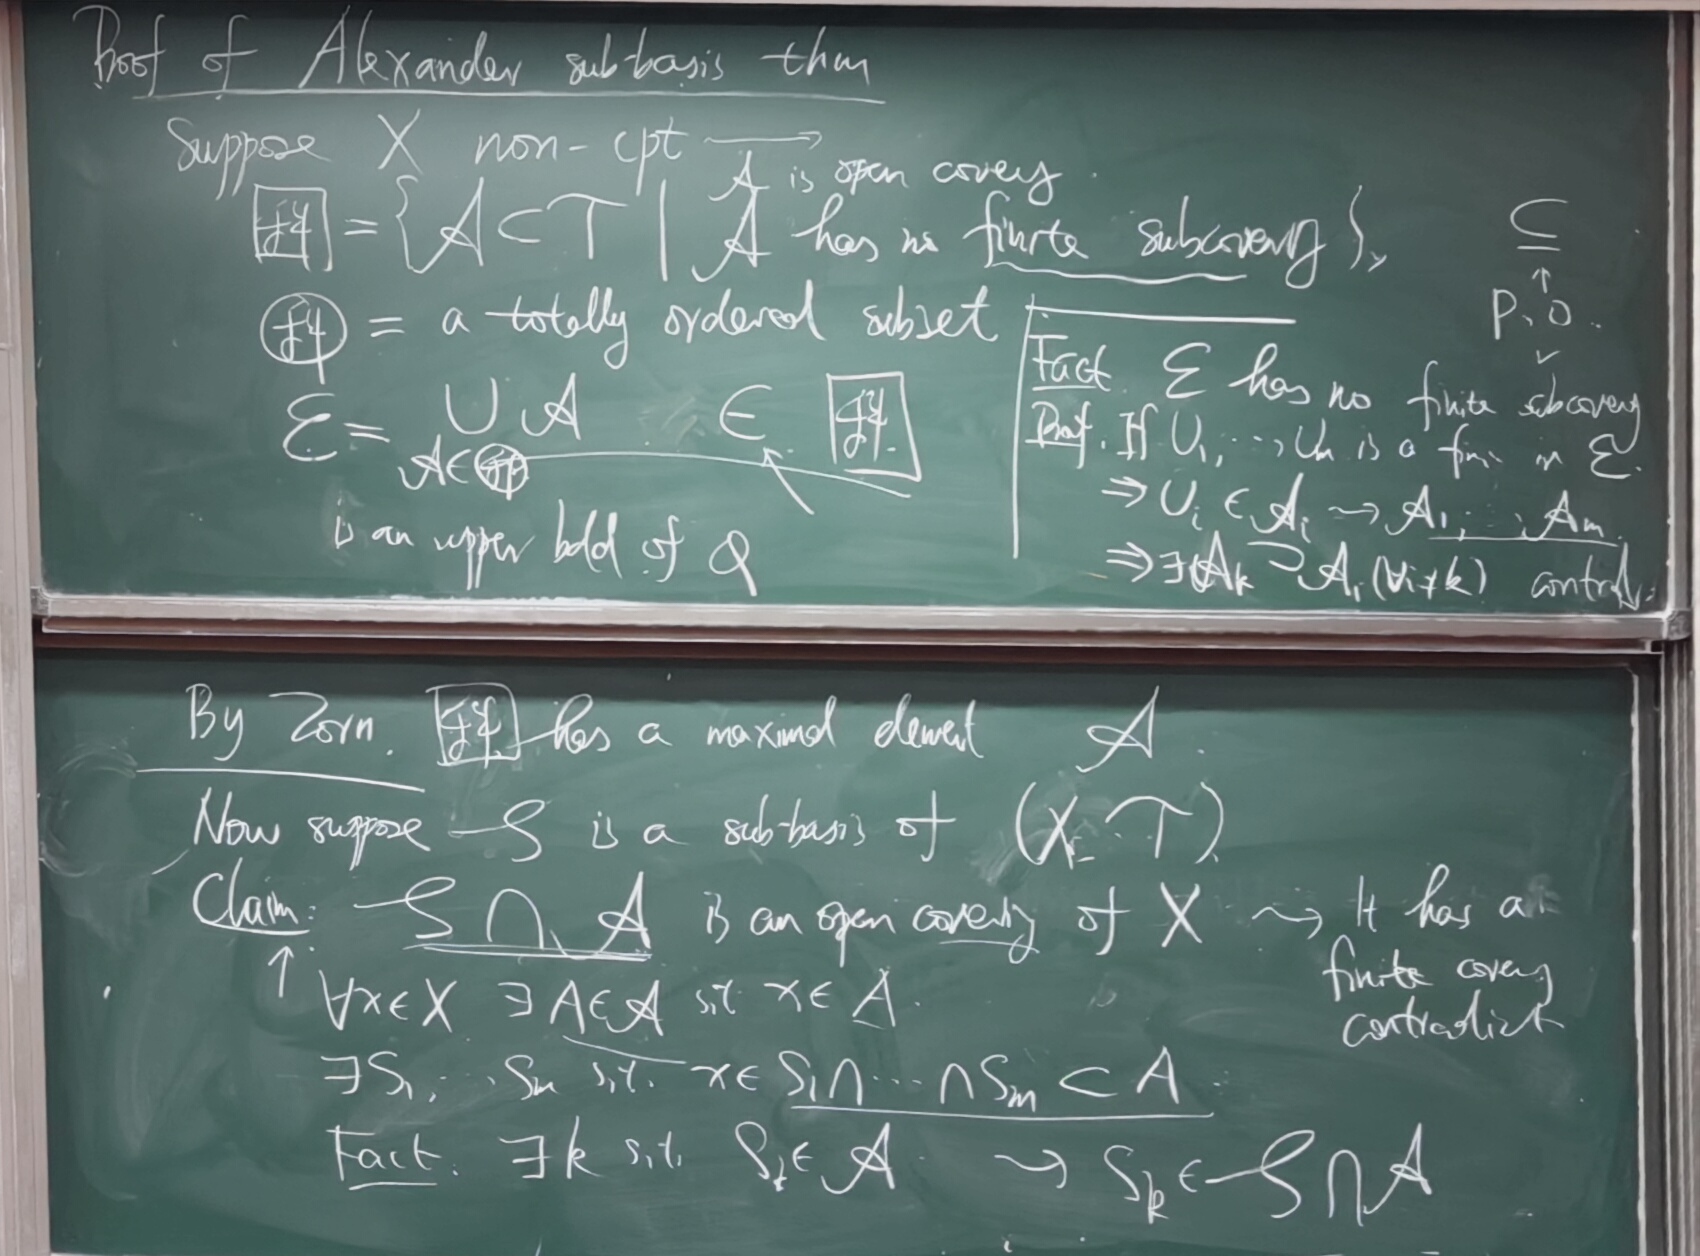 Proof of Alexander sub-basis thm
Suppose X non-cpt →
𝒜 is open covery.
= {𝒜 ⊂ 𝒯 | 𝒜 has no finite subcovery},
= a totally ordered subset
ℰ = ∪ 𝒜 ∈
𝒜∈
is an upper bdd of
⊆
↑
P.O.
Fact. ℰ has no finite subcovery
Proof. If U₁, ..., Uₘ is a fini in ℰ.
⇒ Uᵢ ∈ 𝒜ᵢ → 𝒜₁, ..., 𝒜ₘ
⇒ ∃ 𝒜ₖ ⊃ 𝒜ᵢ (∀i≠k) contrad.
By Zorn. has a maximal element 𝒜.
Now suppose 𝒮 is a sub-basis of (X, 𝒯)
Claim: 𝒮 ∩ 𝒜 is an open covering of X ⇝ It has a
finite covery
contradict
↑ ∀x∈X ∃A∈𝒜 s.t. x∈A.
∃S₁, ... Sₘ s.t. x∈ S₁∩...∩Sₘ ⊂ A.
Fact. ∃k s.t. Sₖ∈ 𝒜 ⇝ Sₖ ∈ 𝒮 ∩ 𝒜